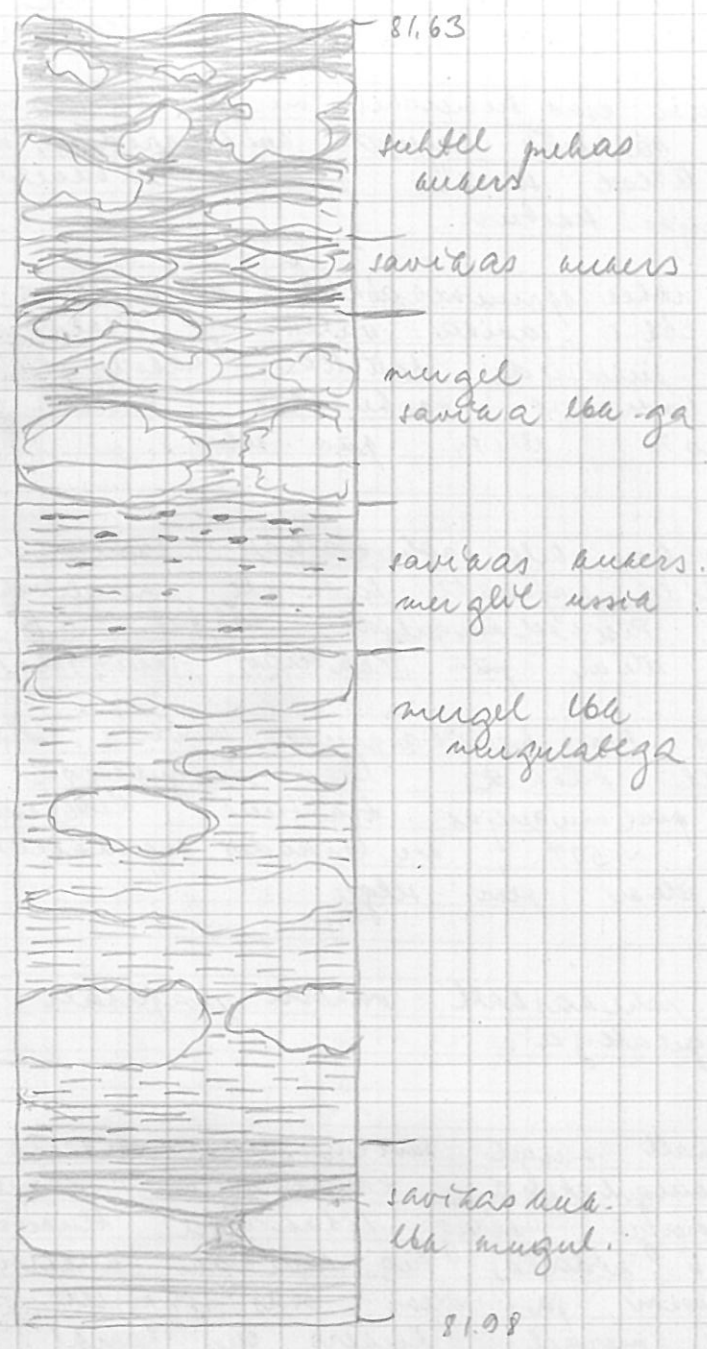 81.63
suhtel puhas
kukers
savikas kukers
mergel
savika lbk-ga
savikas kukers.
merglil ussik
mergel lbk
mugulatega
savikas kuk.
lbk mugul.
81.98